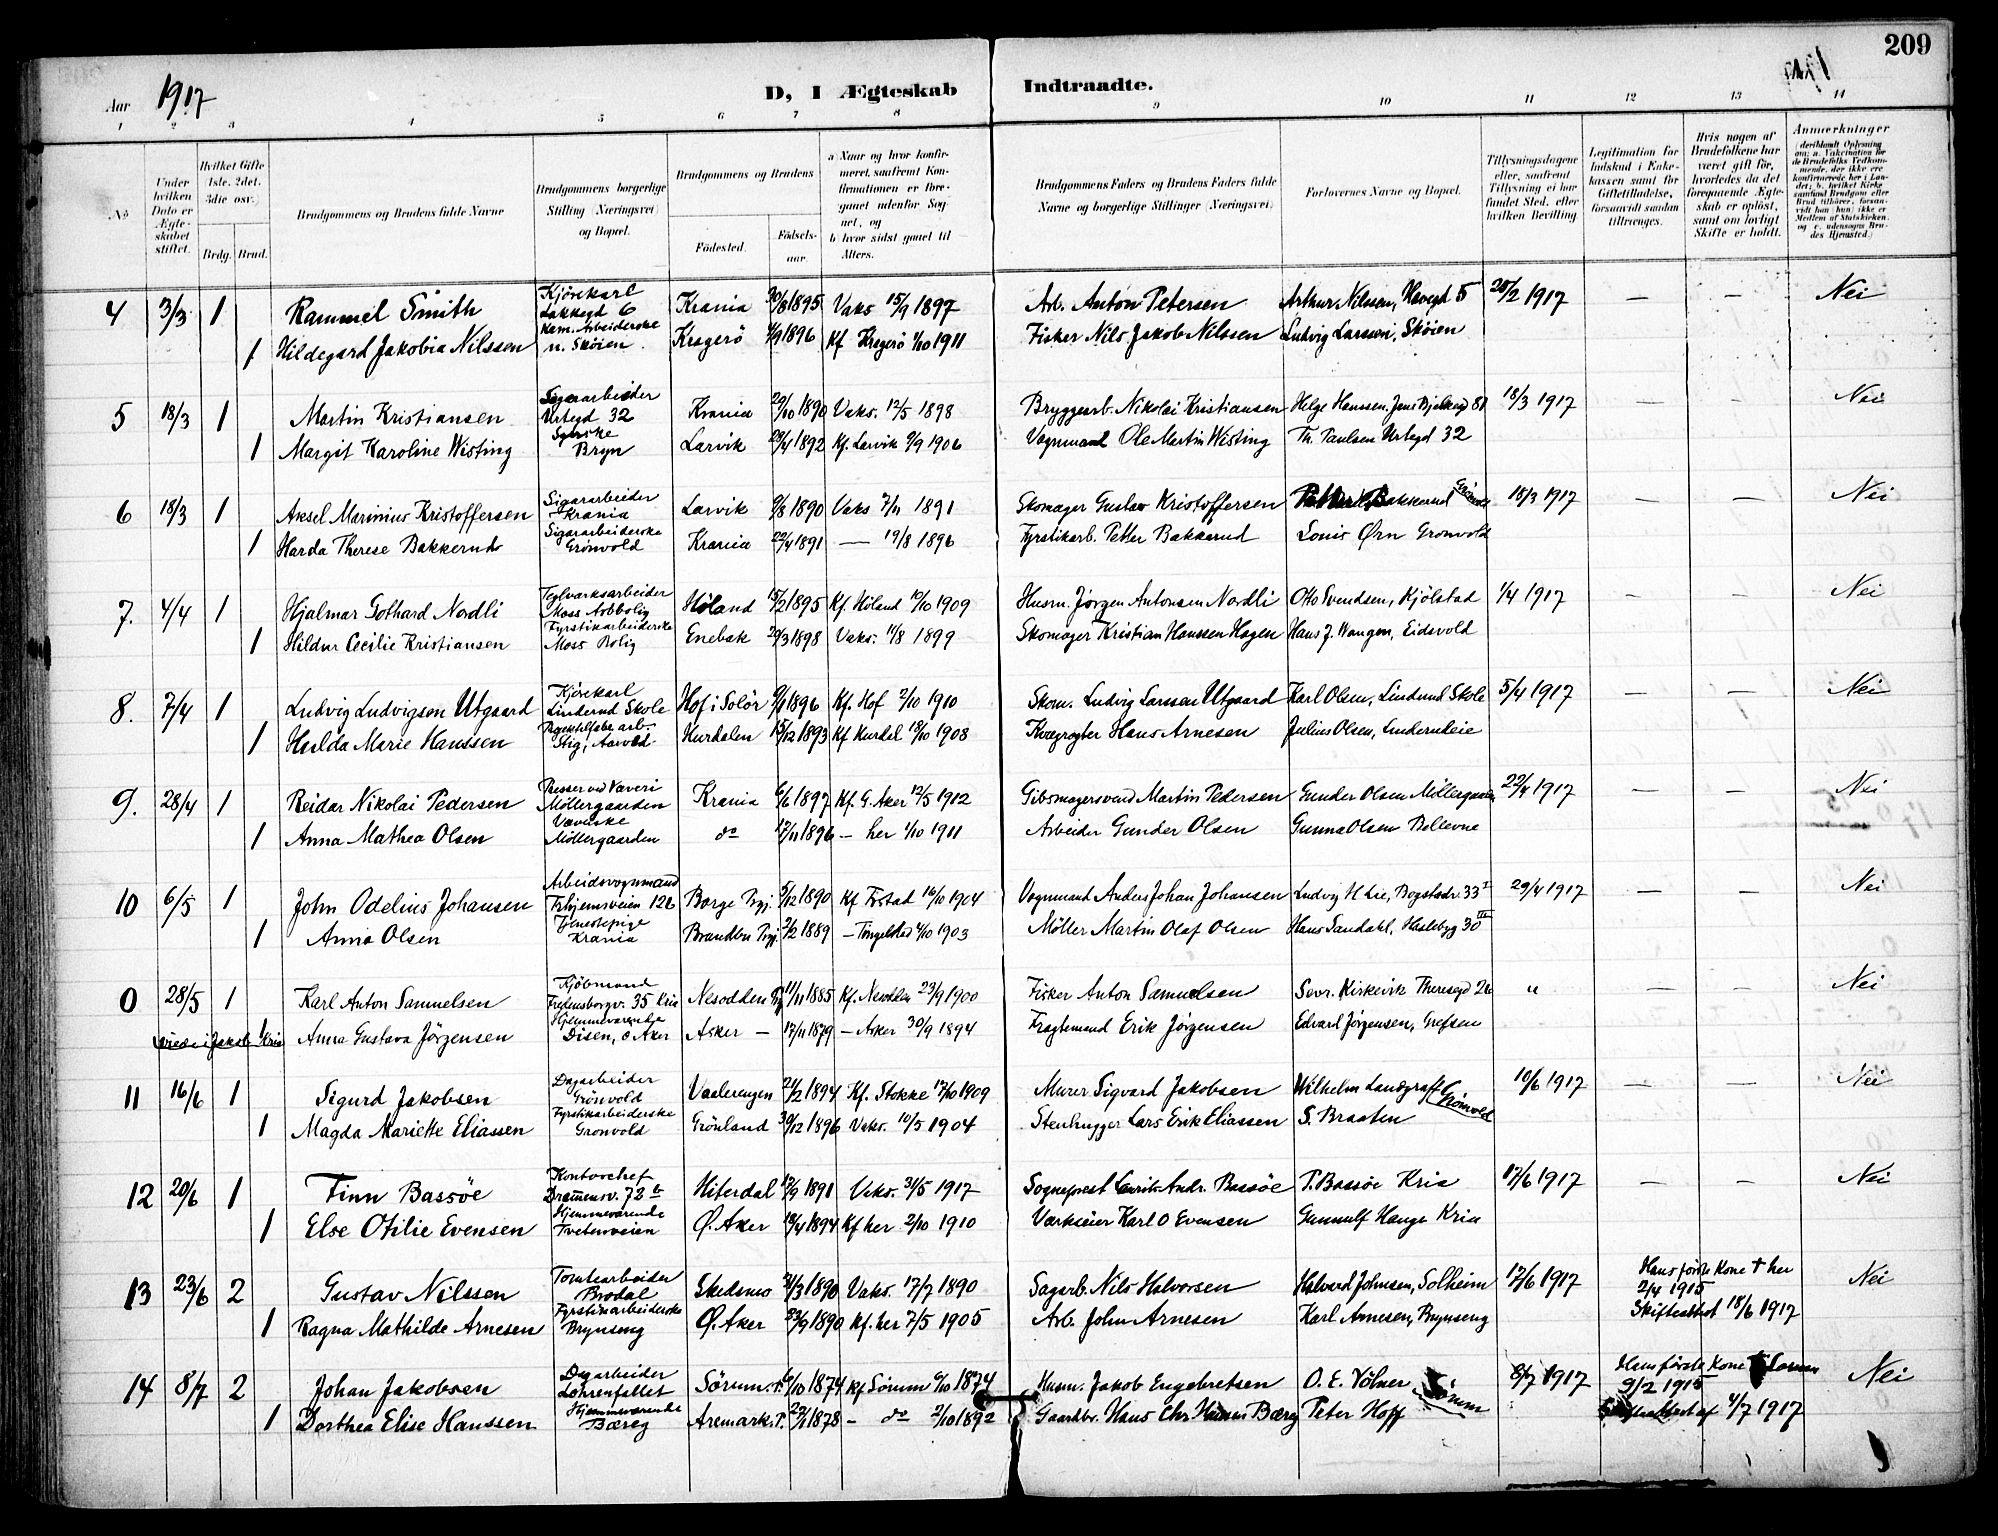 209
Aar 1917 D, I Ægteskab Indtraadte.
1 2 3 4 5 6 7 8 9 10 11 12 13 14
No
Under hvilken Dato er Ægteskabet stiftet.
Hvilket Gifte (1ste, 2det, 3die osv.)
Brdg. Brud.
Brudgommens og Brudens fulde Navne
Brudgommens borgerlige Stilling (Næringsvei) og Bopæl.
Brudgommens og Brudens
Födested. Födselsaar.
a) Naar og hvor konfirmeret, saafremt Konfirmationen er foregaaet udenfor Sognet, og
b) hvor sidst gaaet til Alters.
Brudgommens Faders og Brudens Faders fulde Navne og borgerlige Stillinger (Næringsvei)
Forlovernes Navne og Bopæl.
Tillysningsdagene eller, saafremt Tillysning ei har fundet Sted, efter hvilken Bevilling.
Legitimation for Indskud i Enkekassen samt for Giftetilladelse, forsaavidt saadan tiltrænges.
Hvis nogen af Brudefolkene har været gift för, hvorledes da det foregaaende Ægteskab er oplöst, samt om lovligt Skifte er holdt.
Anmerkninger
(deriblandt Oplysning om: a. Vakcination for de Brudefolks Vedkommende, der ikke ere konfirmerede her i Landet; b. hvilket Kirkesamfund Brudgom eller Brud tilhører, forsaavidt han (hun) ikke er Medlem af Statskirken, og c. udensogns Brudes Hjemsted.)
4 3/3 1 Rammel Smith Kjørekarl Lakkegd 6 Krania 30/8 1895 Vaks 15/9 1897 Arb. Anton Petersen Arthur Nilssen, Havegd 5 25/2 1917 — — Nei
1 Hildegard Jakobia Nilssen Kem. Arbeiderske n. Skøien Kragerö 4/9 1896 Kf Kragerö 1/10 1911 Fisker Nils Jakob Nilssen Ludvig Larssen, Skøien
5 18/3 1 Martin Kristiansen Sigararbeider Urtegd 32 Krania 29/10 1890 Vaks. 12/5 1898 Bryggearb. Nikolai Kristiansen Helge Hanssen, Jens Bjelkegd 81 18/3 1917 — — Nei
1 Margit Karoline Wisting Syerske Bryn Larvik 29/4 1892 Kf. Larvik 9/9 1906 Vognmand Ole Martin Wisting Th. Paulsen Urtegd 32
6 18/3 1 Aksel Marinius Kristoffersen Sigararbeider Krania Larvik 9/8 1890 Vaks 7/11 1891 Skomager Gustav Kristoffersen Petter Bakkerud Grönvold 18/3 1917 — — Nei
1 Harda Therese Bakkerud Sigararbeiderske Grönvold Krania 29/4 1891 — 19/8 1896 Fyrstikarb. Petter Bakkerud Louis Ørn Grønvold
7. 4/4 1 Hjalmar Gothard Nordli Teglverksarbeider Høland 15/2 1895 Kf. Høland 10/10 1909 Husm. Jørgen Antonsen Nordli Otto Svendsen, Kjölstad 1/4 1917 — — Nei
1 Hildur Cecilie Kristiansen Fyrstikarbeiderske Moss Bolig Enebak 20/3 1898 Vaks. 11/8 1899 Skomager Kristian Hanssen Hagen Hans J. Wangen, Eidsvold
8. 7/4 1 Ludvig Ludvigsen Utgaard Kjørekarl Linderud Skole Hof i Solör 9/1 1896 Kf. Hof 2/10 1910 Skom. Ludvig Larssen Utgaard Karl Olsen, Linderud Skole 5/4 1917 — — Nei
1 Hulda Marie Hanssen Projektilfabr. arb. Stig, Aarvold Hurdalen 15/12 1893 Kf Hurdal 18/10 1908 Kvægrøgter Hans Arnesen Julius Olsen, Linderudeie
9. 28/4 1 Reidar Nikolai Pedersen Presser ved Væveri Möllergaarden Krania 6/6 1897 Kf. G. Aker 12/5 1912 Gibsmagersvend Martin Pedersen Gunder Olsen Möllergaarden 22/4 1917 — — Nei
1 Anna Mathea Olsen Væverske Möllergaarden do 17/11 1896 — her 1/10 1911 Arbeider Gunder Olsen Gunna Olsen Bellevue
10 6/5 1 John Odelius Johansen Arbeidsvognmand Borge Prgj. 5/12 1890 Kf Idd 16/10 1904 Vognmand Anders Johan Johansen Ludvig H Lie, Bogstadv. 33 I 29/4 1917 — — Nei
1 Anna Olsen Tjenestepige Krania Brandbu Prgj. 2/2 1889 — Tingelstad 4/10 1903 Möller Martin Olaf Olsen Hans Sandahl, Haslebyg 30 III
0 28/5 1 Karl Anton Samuelsen Kjöbmand Fredensborgv. 35 Kria Nesodden 11/11 1885 Kf. Nesodden 23/9 1900 Fisker Anton Samuelsen Sevr. Kirkevik Theresegd 26 " — — Nei
viede i Jakob Kria 1 Anna Gustava Jörgensen Hjemmeværende Disen, Ø Aker Asker — 17/11 1879 — Asker 30/9 1894 Fragtemand Erik Jørgensen Edvard Jørgensen, Grefsen
11 16/6 1 Sigurd Jakobsen Dagarbeider Grönvold Vaalerengen 21/2 1894 Kf. Stokke 17/10 1909 Murer Sigvard Jakobsen Wilhelm Landgraff Grönvold 10/6 1917 — — Nei
1 Magda Mariette Eliassen Fyrstikarbeiderske Grønvold Grönland 30/12 1896 Vaks. 10/5 1904 Stenhugger Lars Erik Eliassen S. Braaten
12 20/6 1 Finn Bassöe Kontorchef Drammensv. 72 b Hiterdal 12/9 1891 Vaks. 31/5 1917 Sogneprest Andr. Bassöe P. Bassöe Kria 17/6 1917 — — Nei
1 Else Otilie Evensen Hjemmeværende Tvetenveien Ø. Aker 18/4 1894 Kf her 2/10 1910 Værkseier Karl O Evensen Gunnulf Hauge Kria
13 23/6 2 Gustav Nilssen Tomtearbeider Brodal Skedsmo 31/3 1890 Vaks. 17/7 1890 Sagarb. Nils Halvorsen Halvard Johnsen, Solheim 17/6 1917 Hans første Kone † her 2/4 1915 Skifteattest 18/6 1917 Nei
1 Ragna Mathilde Arnesen Fyrstikarbeiderske Brynseng Ø. Aker 23/9 1890 Kf. her 7/5 1905 Arb. John Arnesen Karl Arnesen, Brynseng
14 8/7 2 Johan Jakobsen Dagarbeider Lohrenfallet Sørum P. 6/10 1874 Kf Sørum 1874 Husm. Jakob Engebretsen O. E. Völner 8/7 1917 Hans første Kone † 9/2 1915 Nei
1 Dorthea Elise Hanssen Hjemmeværende Bæreg Aremark P. 23/1 1878 — do 2/10 1892 Gaardbr. Hans Chr Hansen Bæreg Peter Hoff Skifteattest af 4/7 1917